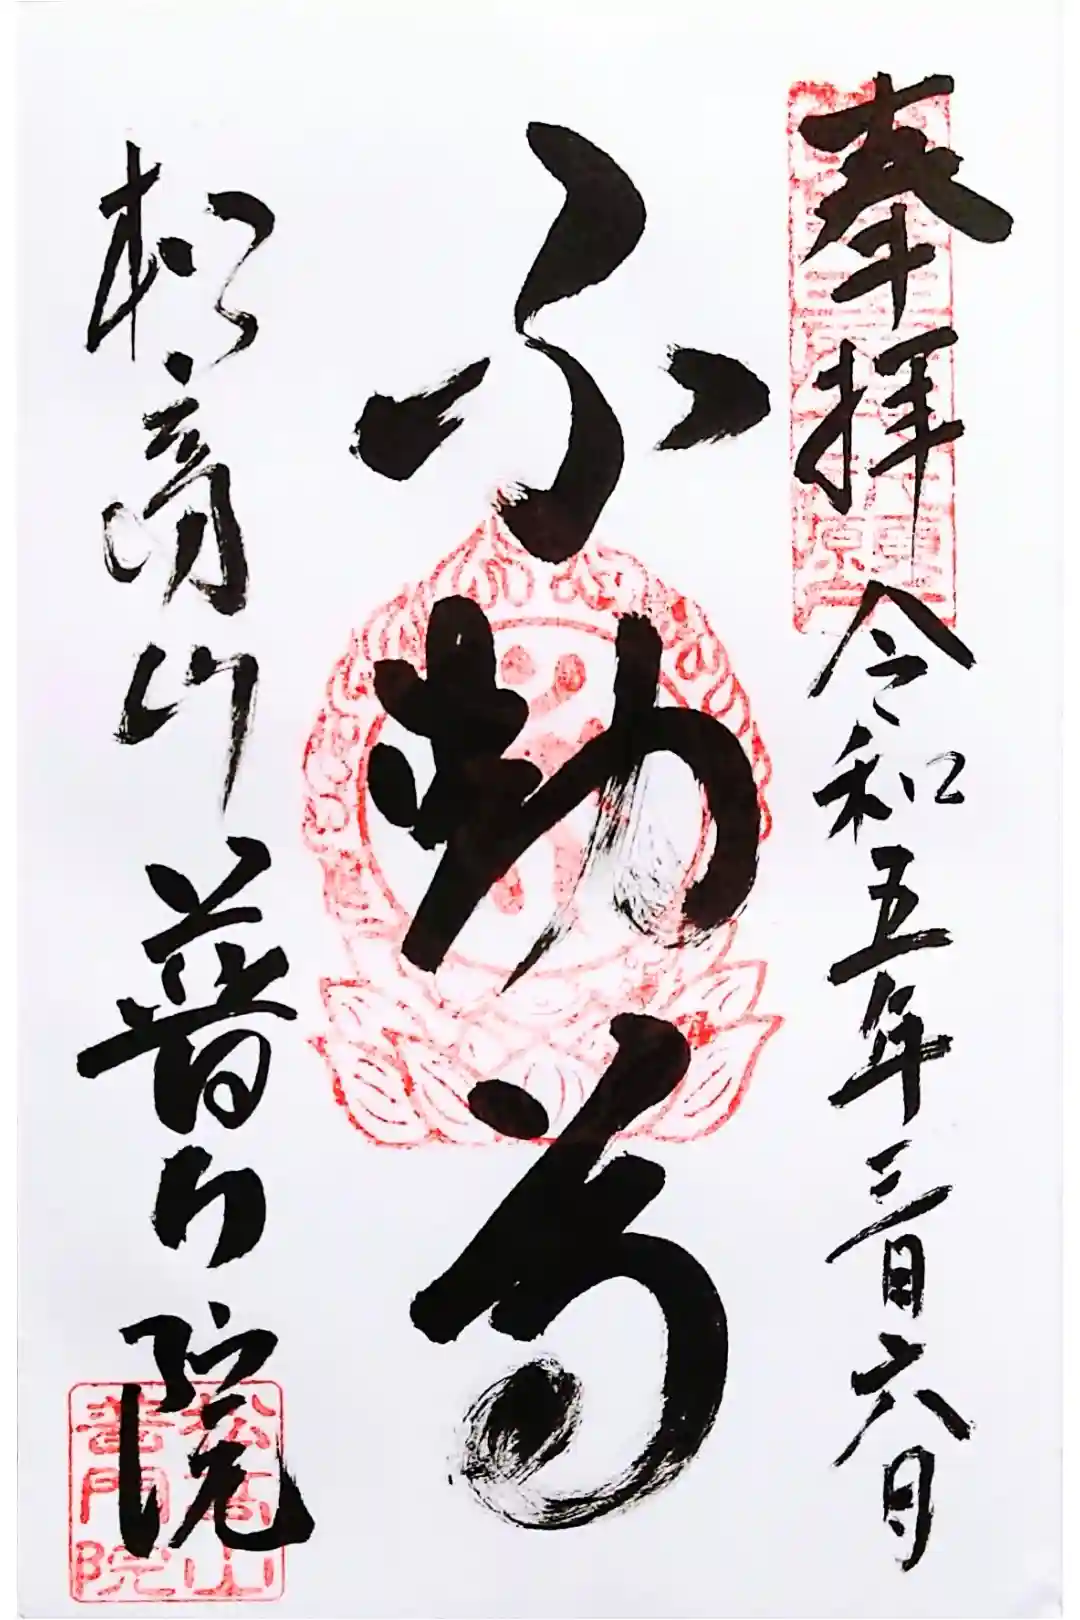 奉拝 令和五年三月六日
不動尊
松高山 普門院
松高山
普門院